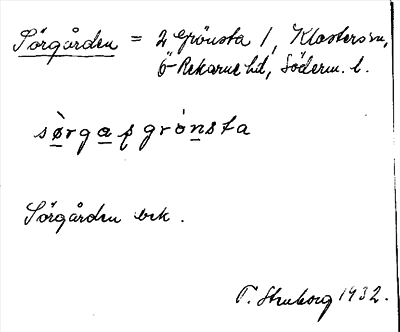 Sörgården = 2 Grönsta 1, Klosters sn,
Ö-Rekarne hd, Söderm. l.
sö̀rga̲ p grö́nsta
Sörgården bek.
T. Struborg 1932.